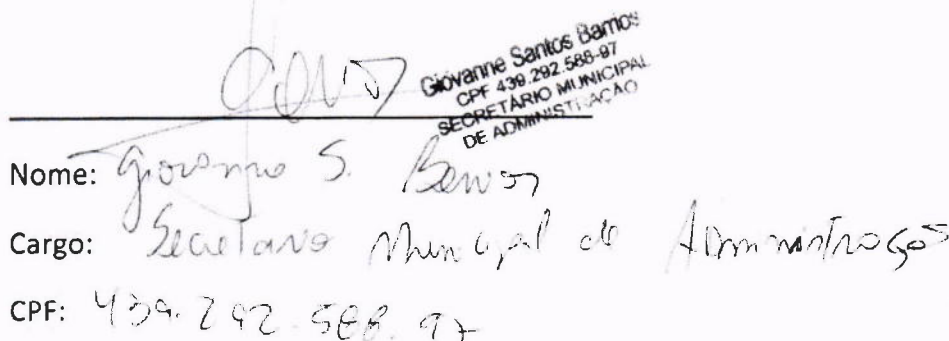 Giovanne Santos Barrios
CPF 439.292.588-97
SECRETÁRIO MUNICIPAL
DE ADMINISTRAÇÃO
Nome: Giovanne S. Barrios
Cargo: Secretario Municipal de Administração
CPF: 439.292.588.97